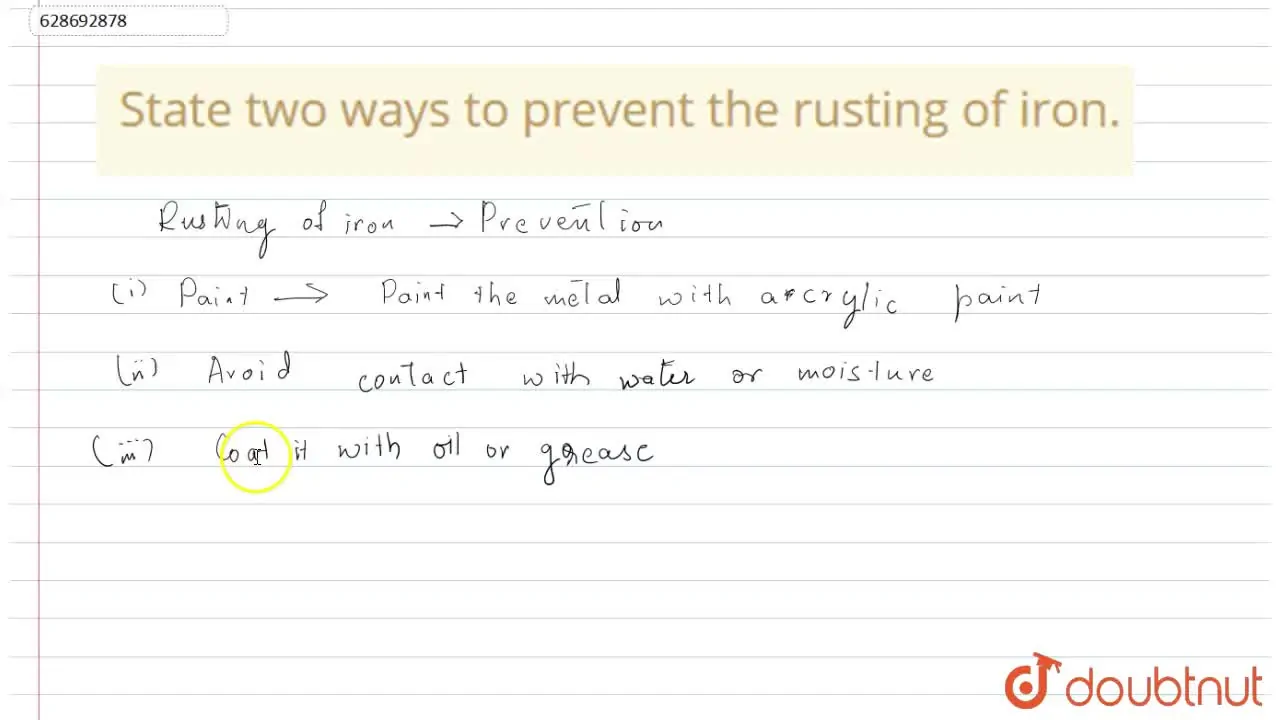 628692878
State two ways to prevent the rusting of iron.
Rusting of iron → Prevention
(i) Paint → Paint the metal with acrylic paint
(ii) Avoid contact with water or moisture
(iii) Coat it with oil or grease
doubtnut